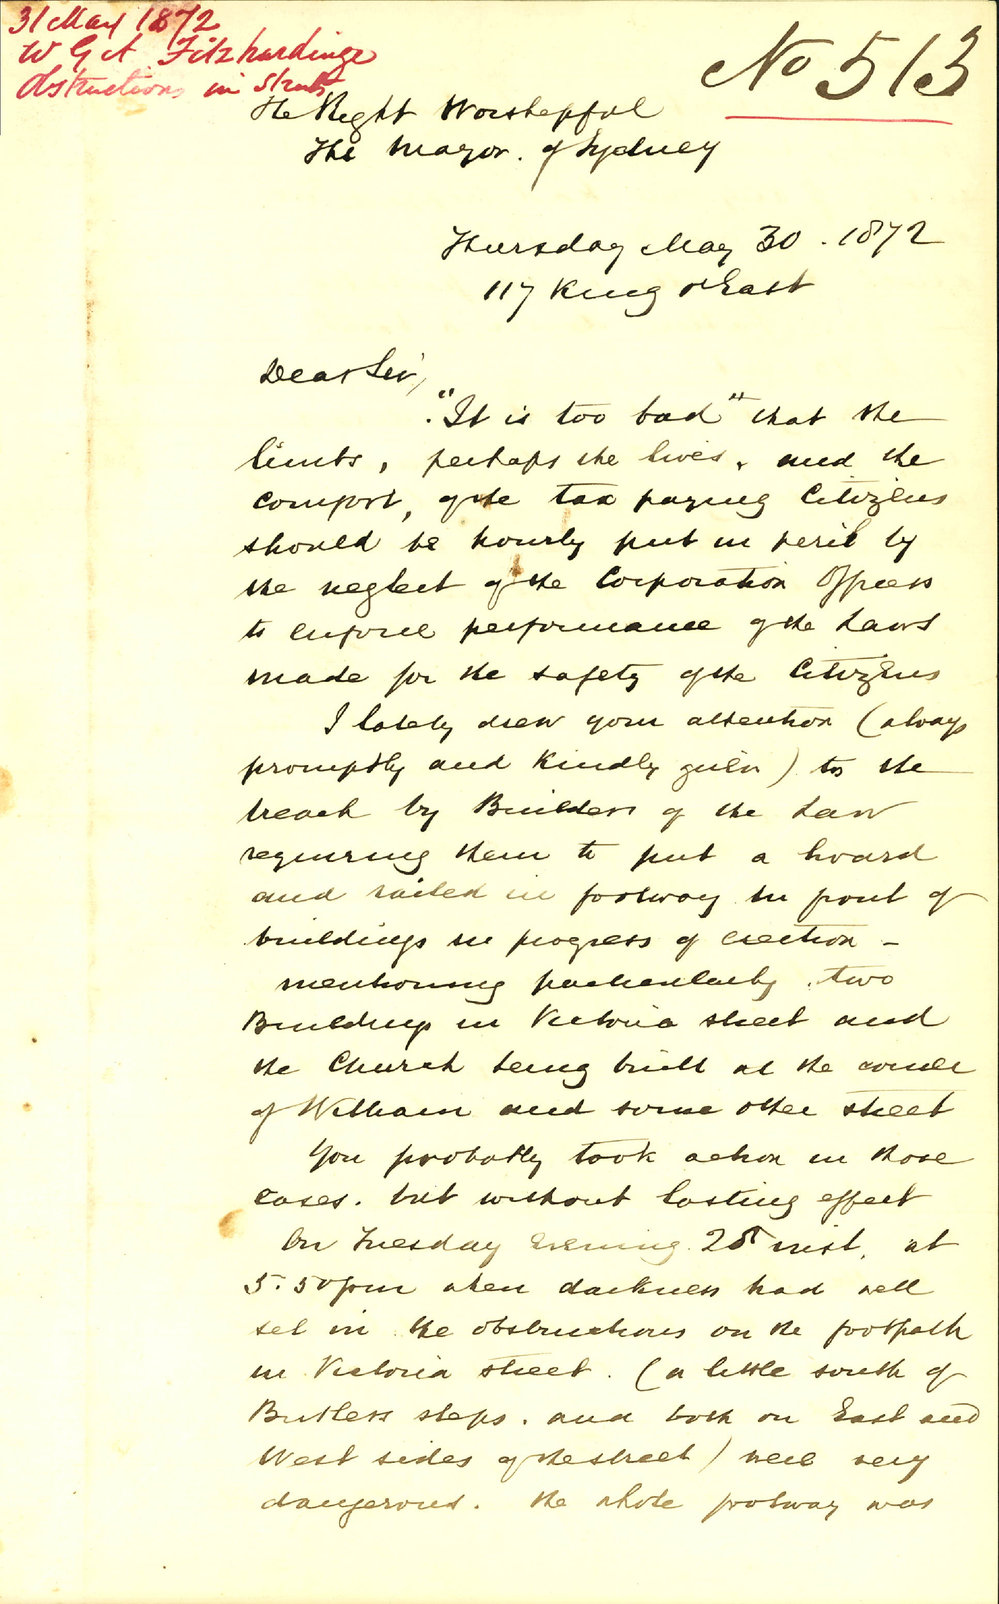 31 May 1872
W G A Fitzhardinge
Obstructions in Streets
No 513
The Right Worshipful
The Mayor of Sydney
Thursday May 30. 1872
117 King St East
Dear Sir,
"It is too bad" that the
limbs, perhaps the lives, and the
comfort, of the tax paying Citizens
should be hourly put in peril by
the neglect of the Corporation Officers
to enforce performance of the Laws
made for the safety of the Citizens
I lately drew your attention (always
promptly and kindly given) to the
breach by Builders of the Law
requiring them to put a hoard
and railed in footway in front of
buildings in progress of erection -
mentioning particularly two
Buildings in Victoria street and
the Church being built at the corner
of William and some other street
You probably took action in those
cases. but without lasting effect
On Tuesday Evening 28 inst, at
5.50 pm when darkness had well
set in the obstructions on the footpath
in Victoria street. (a little south of
Butlers steps. and both on East and
West sides of the street) were very
dangerous. the whole footway was